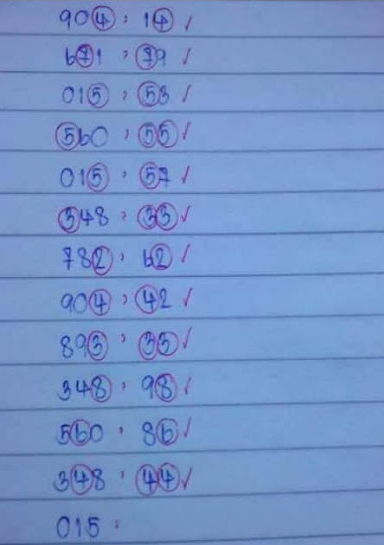 904 : 14 ✓
671 : 79 ✓
015 : 53 ✓
560 : 55 ✓
015 : 57 ✓
348 : 33 ✓
782 : 62 ✓
904 : 42 ✓
893 : 33 ✓
348 : 98 ✓
560 : 86 ✓
348 : 44 ✓
015 :